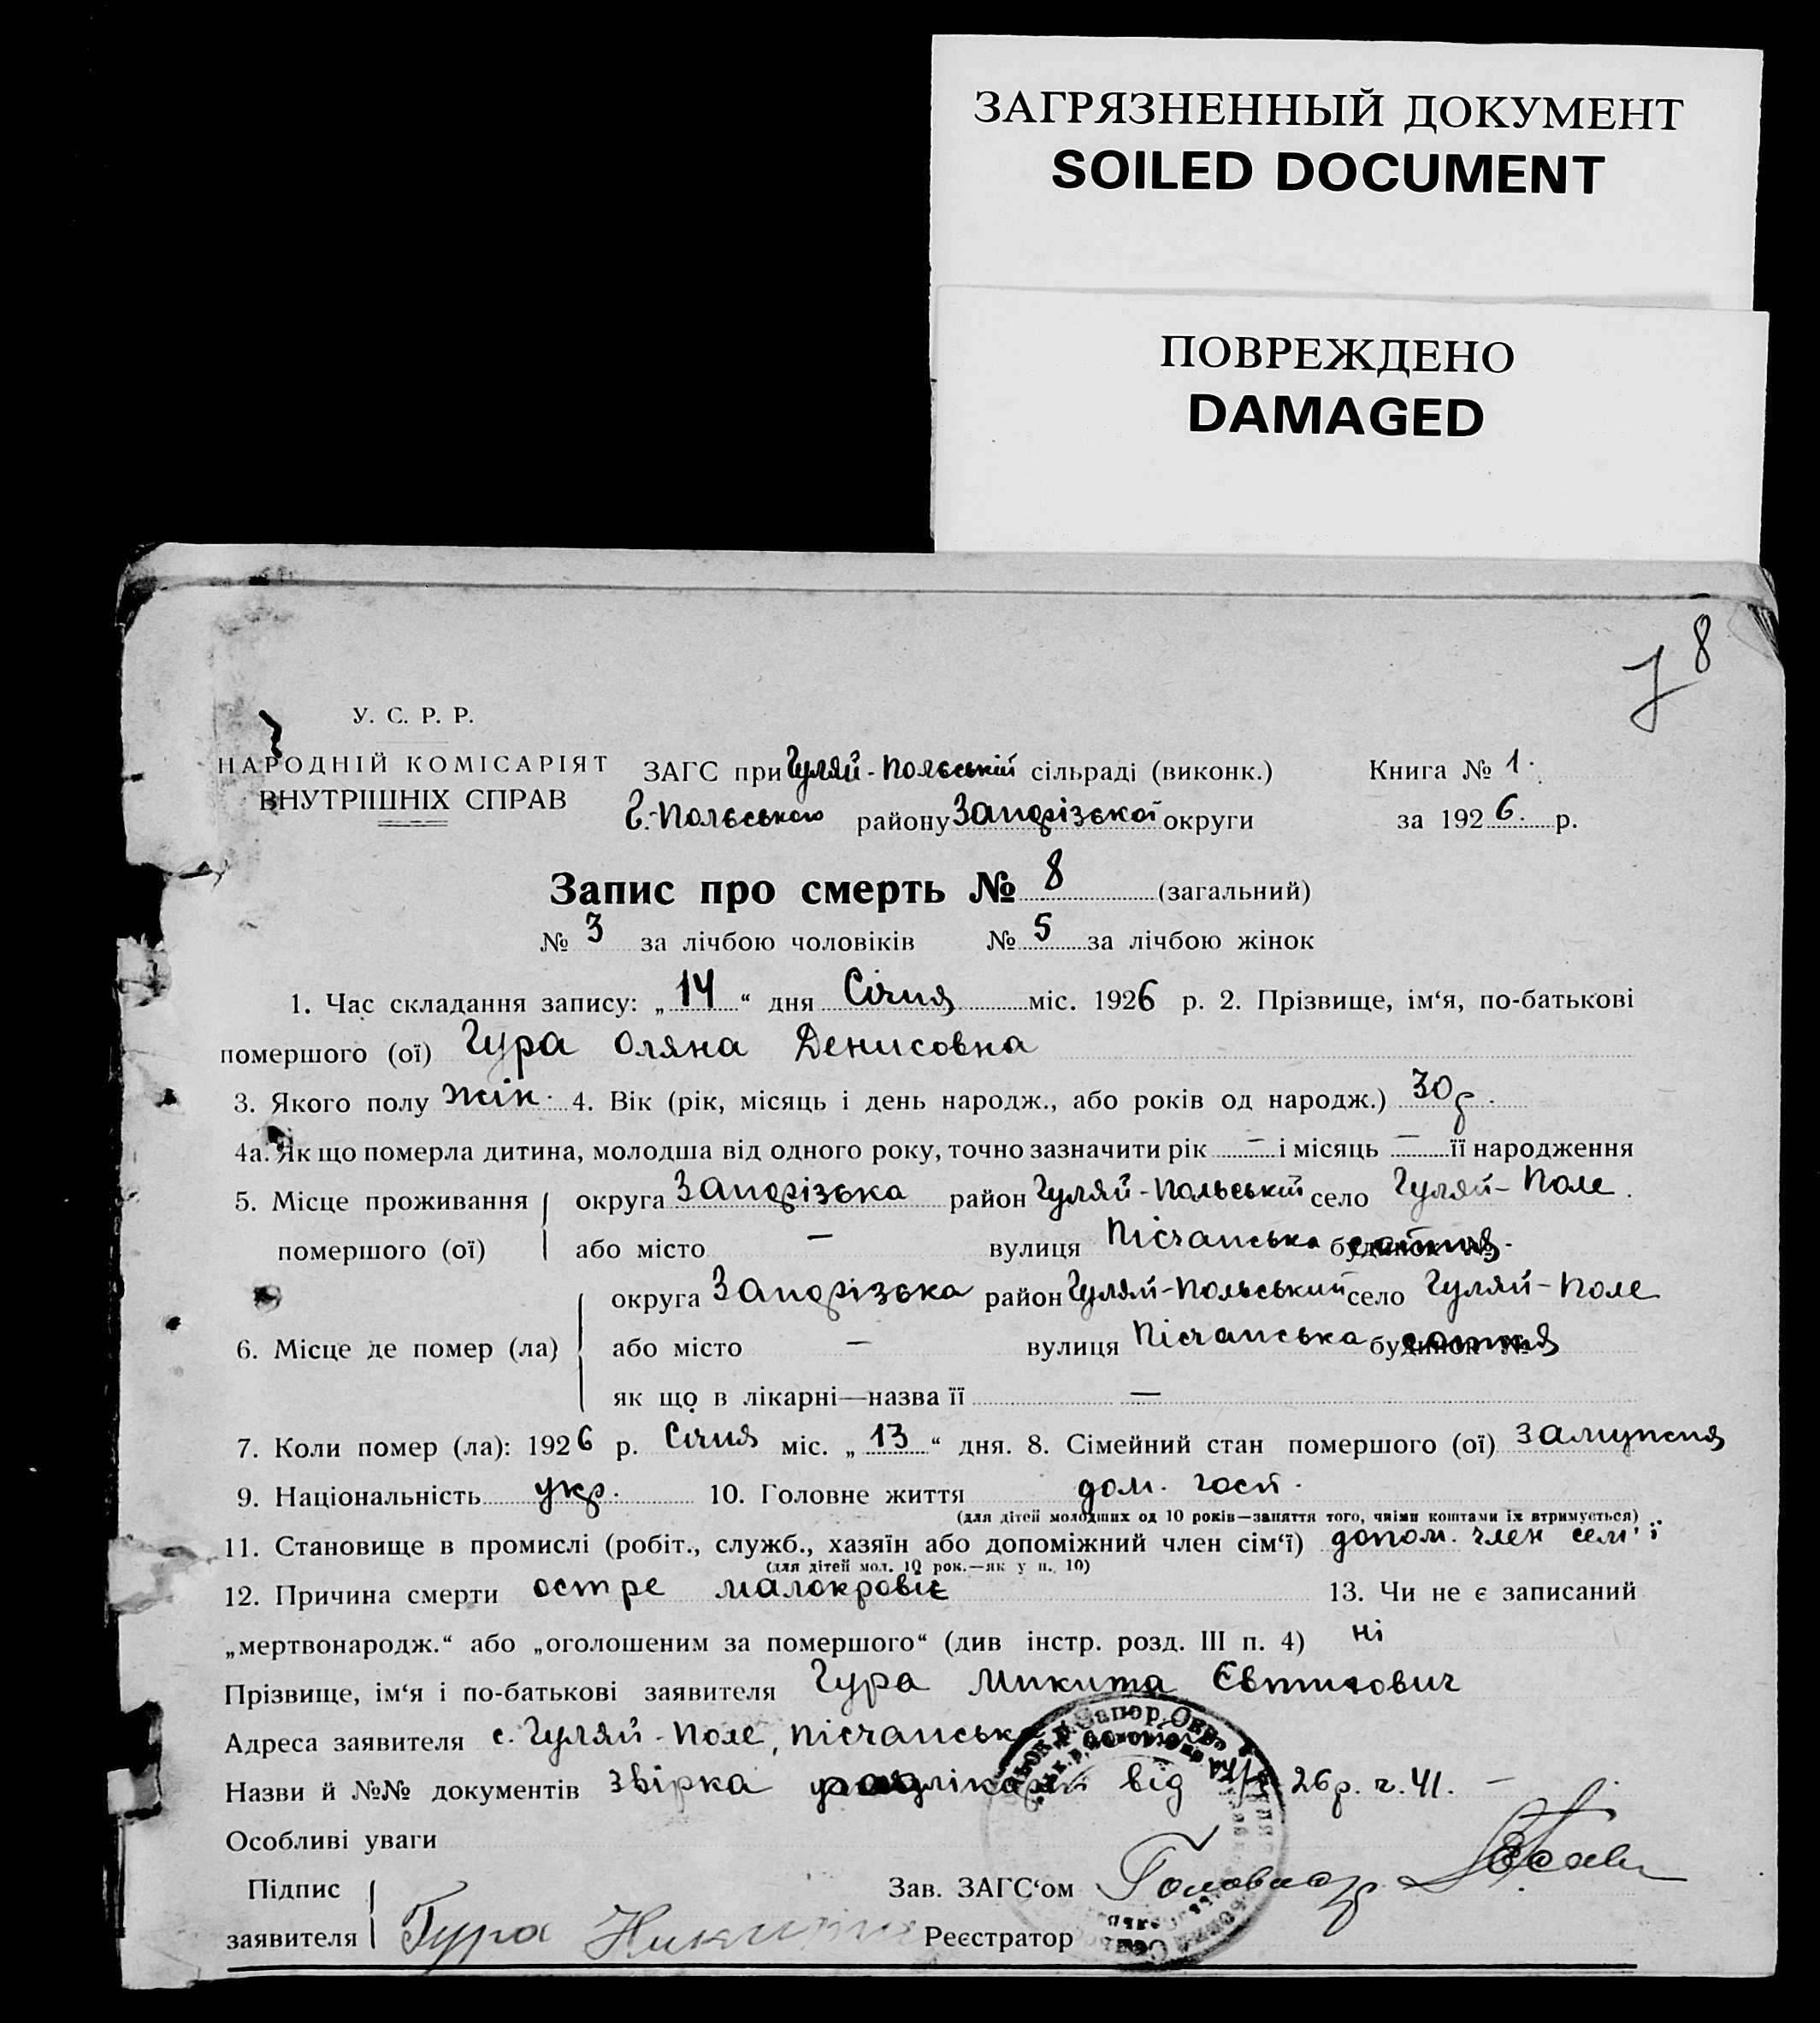 ЗАГРЯЗНЕННЫЙ ДОКУМЕНТ
SOILED DOCUMENT
ПОВРЕЖДЕНО
DAMAGED
8
У. С. Р. Р.
НАРОДНІЙ КОМІСАРІЯТ
ВНУТРІШНІХ СПРАВ
ЗАГС при Гуляй-Польській сільраді (виконк.) Книга № 1.
Г.-Польського району Запорізької округи за 1926. р.
Запис про смерть № 8 (загальний)
№ 3 за лічбою чоловіків № 5 за лічбою жінок
1. Час складання запису: „14“ дня Січня міс. 1926 р. 2. Прізвище, ім‘я, по-батькові
помершого (ої) Гура Оляна Денисовна
3. Якого полу жін. 4. Вік (рік, місяць і день народж., або років од народж.) 30 р.
4а. Як що померла дитина, молодша від одного року, точно зазначити рік — і місяць — її народження
5. Місце проживання округа Запорізька район Гуляй-Польський село Гуляй-Поле.
помершого (ої) або місто — вулиця Пісчанська сотня.
округа Запорізька район Гуляй-Польський село Гуляй-Поле
6. Місце де помер (ла) або місто — вулиця Пісчанська будинок № сотня
як що в лікарні—назва її —
7. Коли помер (ла): 1926 р. Січня міс. „13“ дня. 8. Сімейний стан помершого (ої) замужня
9. Національність укр. 10. Головне життя дом. госп.
(для дітей молодших од 10 років—заняття того, чиїми коштами їх втримується)
11. Становище в промислі (робіт., служб., хазяїн або допоміжний член сім‘ї) допом. член сем'ї
(для дітей мол. 10 рок.—як у п. 10)
12. Причина смерти остре малокровіє 13. Чи не є записаний
„мертвонародж.“ або „оголошеним за помершого“ (див інстр. розд. III п. 4) ні
Прізвище, ім‘я і по-батькові заявителя Гура Микита
Адреса заявителя с. Гуляй-Поле, Пісчанська
Назви й №№ документів від 26 р. ч. 41. —
Особливі уваги
Підпис заявителя Гура Никита
Зав. ЗАГС‘ом
Реєстратор